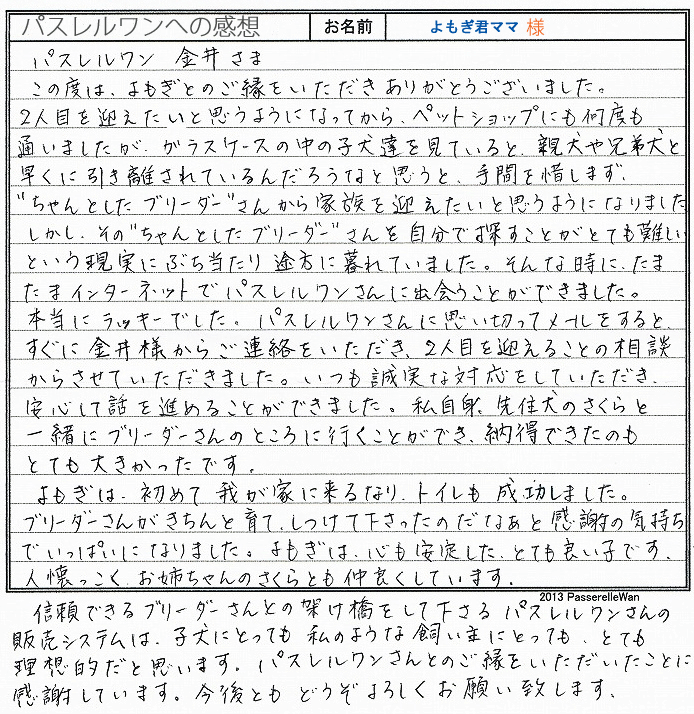 パスレルワンへの感想 お名前 よもぎ君ママ 様
パスレルワン 金井さま
この度は、よもぎとのご縁をいただきありがとうございました。
2人目を迎えたいと思うようになってから、ペットショップにも何度も
通いましたが、ガラスケースの中の子犬達を見ていると、親犬や兄弟犬と
早くに引き離されているんだろうなと思うと、手間を惜しまず、
"ちゃんとしたブリーダー"さんから家族を迎えたいと思うようになりました
しかし、その"ちゃんとしたブリーダー"さんを自分で探すことがとても難しい
という現実にぶち当たり途方に暮れていました。そんな時に、たま
たまインターネットでパスレルワンさんに出会うことができました。
本当にラッキーでした。パスレルワンさんに思い切ってメールをすると、
すぐに金井様からご連絡をいただき、2人目を迎えることの相談
からさせていただきました。いつも誠実な対応をしていただき、
安心して話を進めることができました。私自身、先住犬のさくらと
一緒にブリーダーさんのところに行くことができ、納得できたのも
とても大きかったです。
よもぎは、初めて我が家に来るなり、トイレも成功しました。
ブリーダーさんがきちんと育て、しつけて下さったのだなあと感謝の気持ち
でいっぱいになりました。よもぎは、心も安定した、とても良い子です。
人懐っこく、お姉ちゃんのさくらとも仲良くしています。
2013 PasserelleWan
信頼できるブリーダーさんとの架け橋をして下さるパスレルワンさんの
販売システムは、子犬にとっても私のような飼い主にとっても、とても
理想的だと思います。パスレルワンさんとのご縁をいただいたことに
感謝しています。今後ともどうぞよろしくお願い致します。